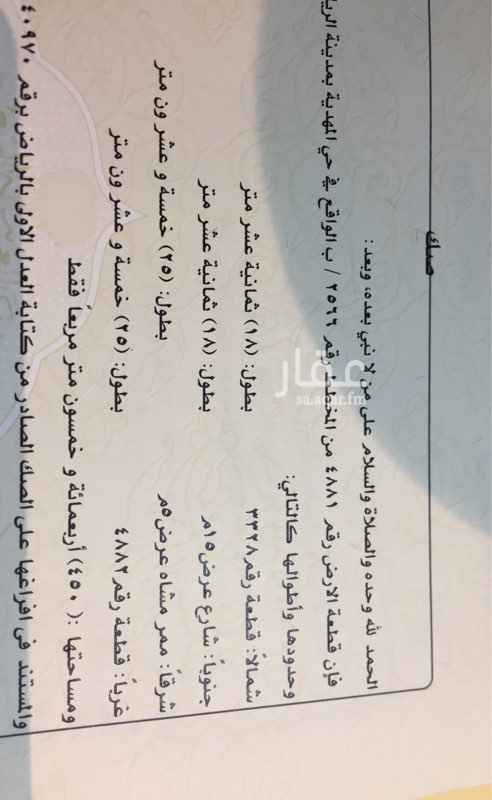 صك
الحمد لله وحده والصلاة والسلام على من لا نبي بعده، وبعد:
فإن قطعة الارض رقم ٤٨٨١ من المخطط رقم ٢٥٦٦ / ب الواقع في حي المهدية بمدينة
وحدودها وأطوالها كالتالي:
شمالاً: قطعة رقم ٣٣٢٨ بطول: (١٨) ثمانية عشر متر
جنوباً: شارع عرض ١٥م بطول: (١٨) ثمانية عشر متر
شرقاً: ممر مشاه عرض ٥م بطول: (٢٥) خمسة و عشر ون متر
غرباً: قطعة رقم ٤٨٨٢ بطول: (٢٥) خمسة و عشر ون متر
ومساحتها : (٤٥٠) أربعمائة و خمسون متر مربعاً فقط
والمستند في افراغها على الصك الصادر من كتابة العدل الاولى بالرياض برقم
عقار
sa.aqar.fm